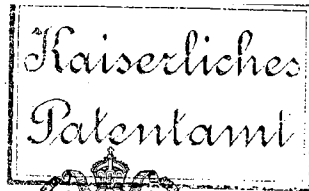 Kaiserliches
Patentamt